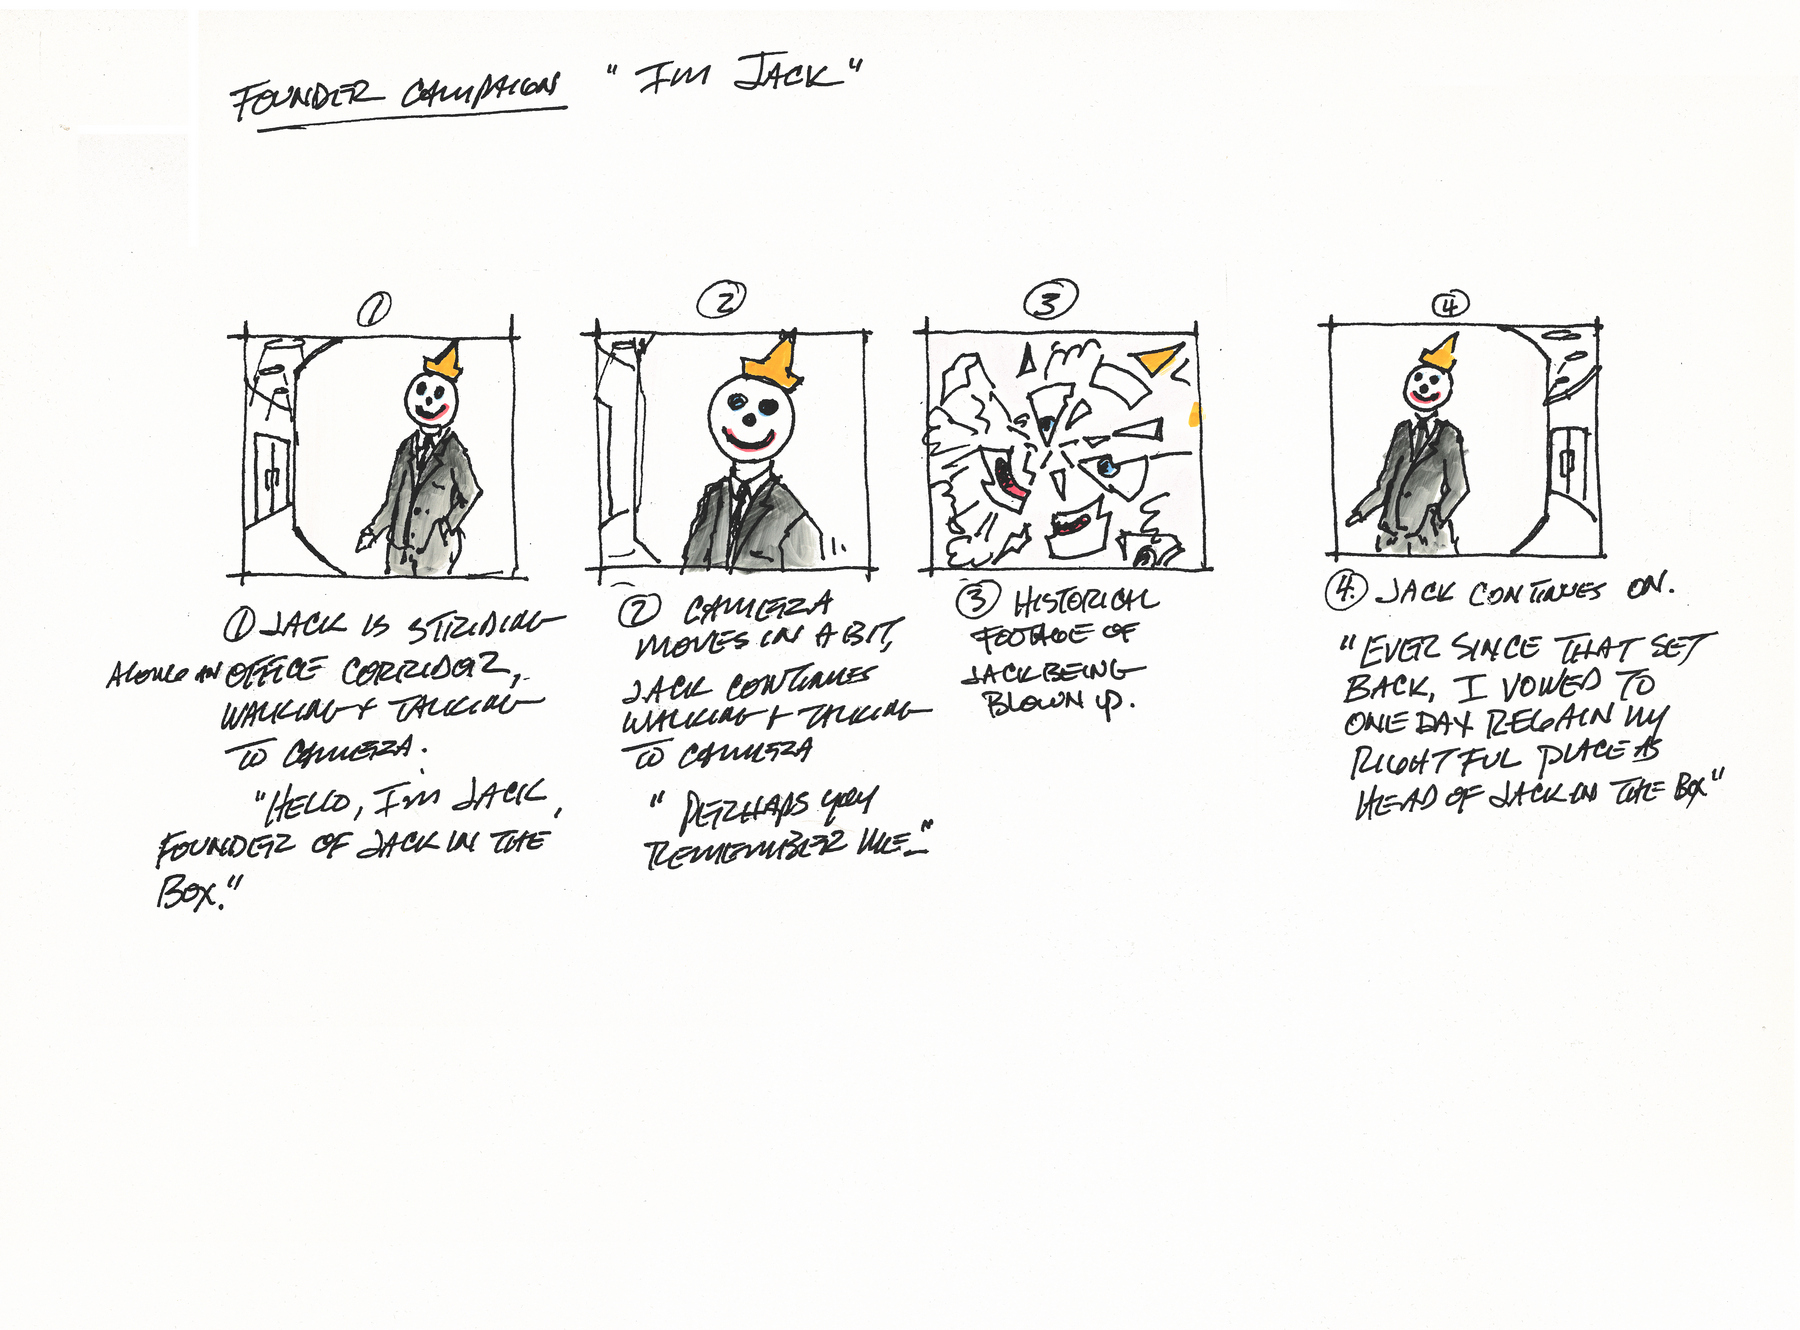 FOUNDER CAMPAIGN "I'M JACK"
①
① JACK IS STRIDING
ALONG AN OFFICE CORRIDOR,
WALKING + TALKING
TO CAMERA.
"HELLO, I'M JACK,
FOUNDER OF JACK IN THE
BOX."
②
② CAMERA
MOVES IN A BIT,
JACK CONTINUES
WALKING + TALKING
TO CAMERA
"PERHAPS YOU
REMEMBER ME_"
③
③ HISTORICAL
FOOTAGE OF
JACK BEING
BLOWN UP.
④
④. JACK CONTINUES ON.
"EVER SINCE THAT SET
BACK, I VOWED TO
ONE DAY REGAIN MY
RIGHTFUL PLACE AS
HEAD OF JACK IN THE BOX"